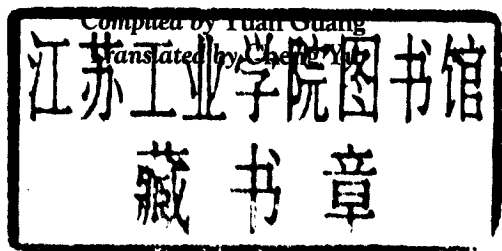 Compiled by Yuan Guang
Translated by Cheng Yu
江苏工业学院图书馆
藏书章